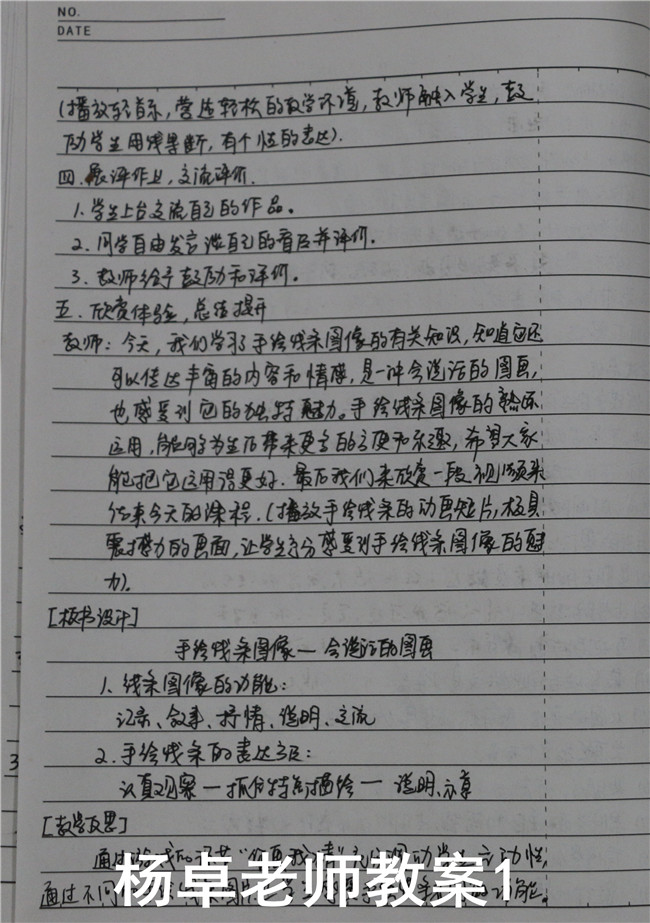 NO.
DATE
(播放轻音乐，营造轻松的教学环境，教师融入学生，鼓
励学生用线果断，有个性的表达)．
四．展评作业，交流评价．
1．学生上台交流自己的作品。
2．同学自由发言谈自己的看法并评价．
3．教师给予鼓励和评价。
五．欣赏体验，总结提升
教师：今天，我们学习了手绘线条图像的有关知识，知道它还
可以传达丰富的内容和情感，是一种会说话的图画，
也感受到它的独特魅力。手绘线条图像的熟练
运用，能够为生活带来更多的方便和乐趣，希望大家
能把它运用得更好．最后我们来欣赏一段视频来
结束今天的课程．(播放手绘线条的动画短片，极具
震撼力的画面，让学生充分感受到手绘线条图像的魅
力)．
[板书设计]
手绘线条图像—会说话的图画
1．线条图像的功能：
记录、叙事、抒情、说明、交流
2．手绘线条的表达方法：
认真观察—抓住特征描绘—说明、示意
3
[教学反思]
通过
通过不同
杨卓老师教案1